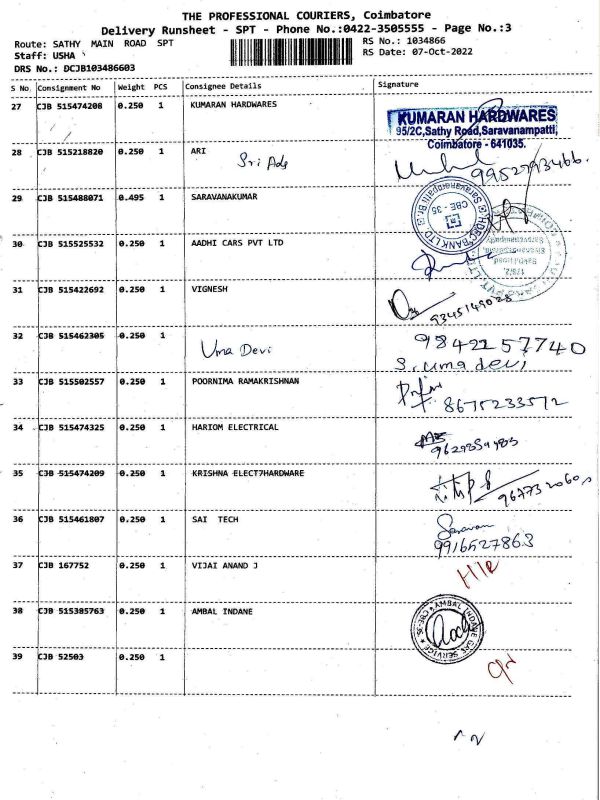 THE PROFESSIONAL COURIERS, Coimbatore
Delivery Runsheet - SPT - Phone No.:0422-3505555 - Page No.:3
Route: SATHY MAIN ROAD SPT RS No.: 1034866
Staff: USHA RS Date: 07-Oct-2022
DRS No.: DCJB103486603
S No Consignment No Weight PCS Consignee Details Signature
27 CJB 515474208 0.250 1 KUMARAN HARDWARES
KUMARAN HARDWARES
95/2C,Sathy Road,Saravanampatti,
Coimbatore - 641035.
28 CJB 515218820 0.250 1 ARI
Sri Ads 9952793466.
29 CJB 515488071 0.495 1 SARAVANAKUMAR
HDFC BANK LTD.
Saravanampatti Br.
CBE - 35
30 CJB 515525532 0.250 1 AADHI CARS PVT LTD
31 CJB 515422692 0.250 1 VIGNESH
9345149028
32 CJB 515462305 0.250 1
Uma Devi 9842257740
S. uma devi
33 CJB 515502557 0.250 1 POORNIMA RAMAKRISHNAN
8675233572
34 CJB 515474325 0.250 1 HARIOM ELECTRICAL
35 CJB 515474209 0.250 1 KRISHNA ELECT7HARDWARE
36 CJB 515461807 0.250 1 SAI TECH
Saravan
9916527863
37 CJB 167752 0.250 1 VIJAI ANAND J
38 CJB 515385763 0.250 1 AMBAL INDANE
AMBAL INDANE GAS SERVICE
CBE-35
39 CJB 52503 0.250 1